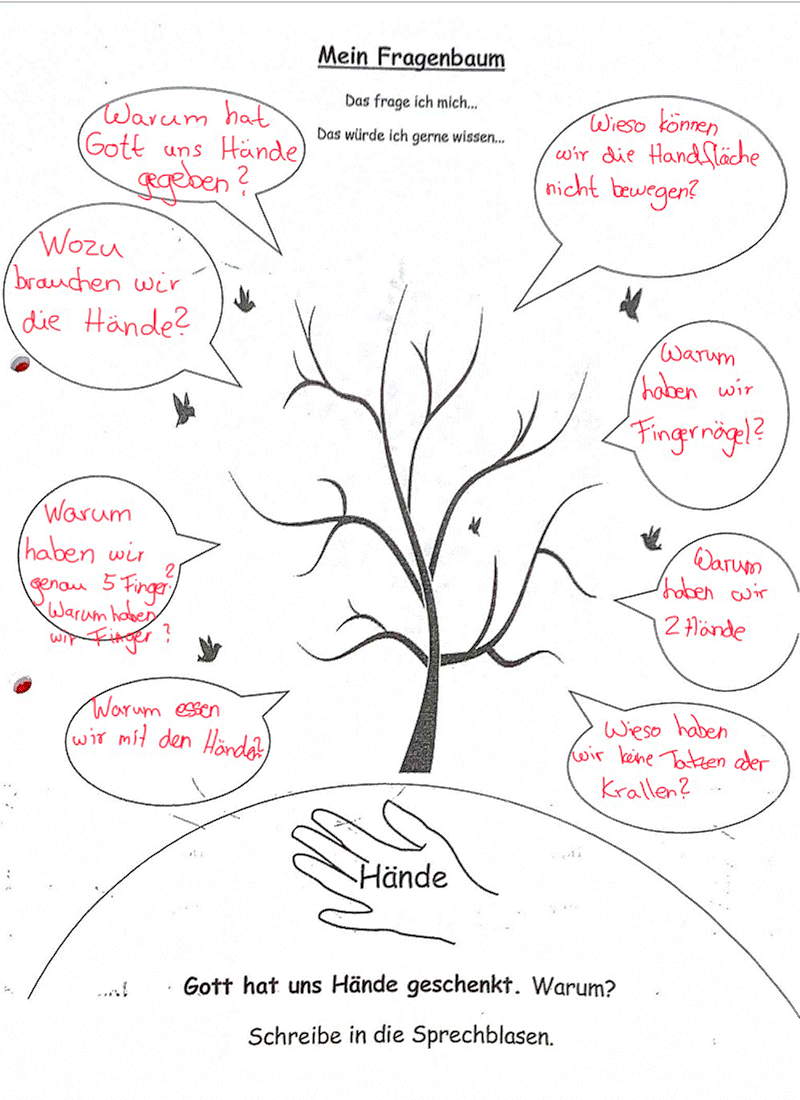 Mein Fragenbaum
Das frage ich mich...
Das würde ich gerne wissen...
Warum hat
Gott uns Hände
gegeben?
Wieso können
wir die Handfläche
nicht bewegen?
Wozu
brauchen wir
die Hände?
Warum
haben wir
Fingernägel?
Warum
haben wir
genau 5 Finger?
Warum haben
wir Finger?
Warum
haben wir
2 Hände
Warum essen
wir mit den Hände?
Wieso haben
wir keine Tatzen oder
Krallen?
Hände
Gott hat uns Hände geschenkt. Warum?
Schreibe in die Sprechblasen.